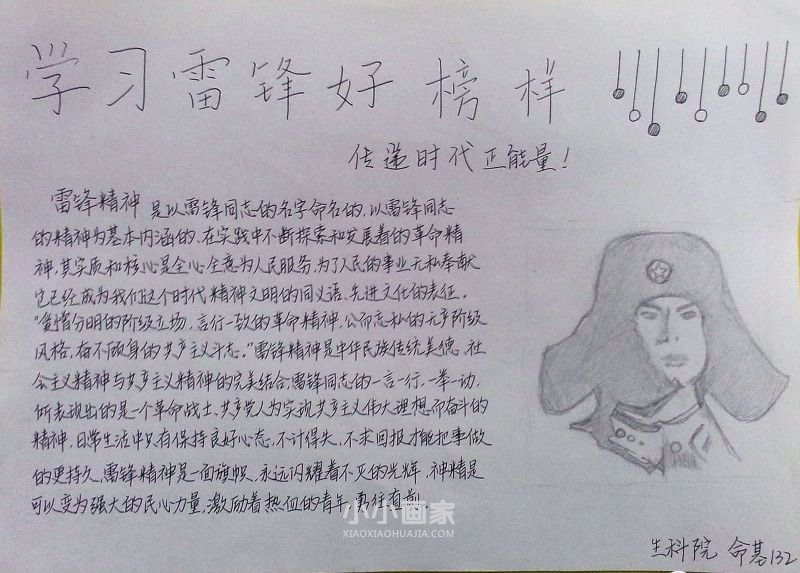 学习雷锋好榜样
传递时代正能量!
雷锋精神 是以雷锋同志的名字命名的,以雷锋同志
的精神为基本内涵的、在实践中不断探索和发展着的革命精
神,其实质和核心是全心全意为人民服务,为了人民的事业无私奉献
它已经成为我们这个时代精神文明的同义语、先进文化的表征。
"爱憎分明的阶级立场、言行一致的革命精神、公而忘私的无产阶级
风格、奋不顾身的共产主义斗志。"雷锋精神是中华民族传统美德、社
会主义精神与共产主义精神的完美结合;雷锋同志的一言一行,一举一动,
所表现出的是一个革命战士、共产党人为实现共产主义伟大理想而奋斗的
精神,日常生活中只有保持良好心态,不计得失,不求回报才能把事做
的更持久,雷锋精神是一面旗帜,永远闪耀着不灭的光辉,神精是
可以变为强大的民心力量,激励着热血的青年,勇往直前。
小小画家
XIAOXIAOHUAJIA.COM
生科院 命基132